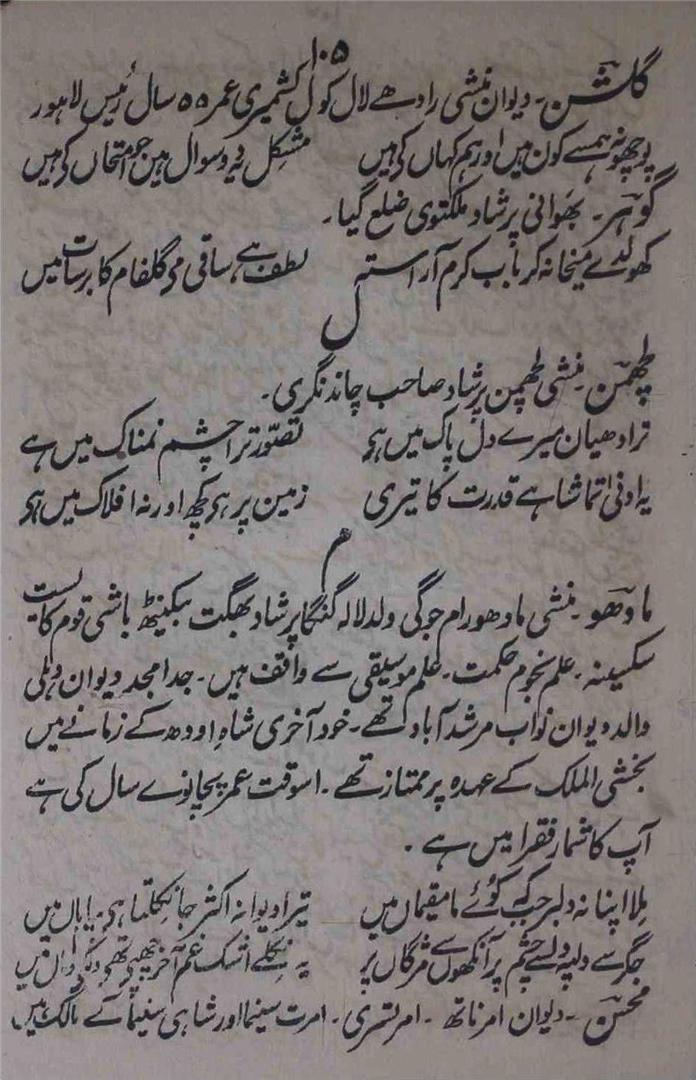 ۱۰۵
گلشن۔ دیوان منشی رادھے لال کول کشمیری عمر ۵۵ سال رئیس لاہور
پوچھو نہ ہمسے کون ہیں اور ہم کہاں کی ہیں مشکل یہ دو سوال ہیں جو امتحاں کی ہیں
گوہر۔ بھوانی پرشاد ملکتوی ضلع گیا۔
کھولدے میخانہ کر باب کرم آراستہ لطف ہے ساقی مے گلفام کا برسات میں
ل
لچھمن۔ منشی لچھمن پرشاد صاحب چاند نگری۔
ترا دھیان میرے دل پاک میں ہے تصوّر ترا چشم نمناک میں ہے
یہ ادنیٰ تماشا ہے قدرت کا تیری زمین پر ہے کچھ اور نہ افلاک میں ہے
م
مادھو۔ منشی مادھو رام جوگی ولد لالہ گنگا پرشاد بھگت بیکنیٹھ باشی قوم کایست
سکسینہ۔ علم نجوم حکمت۔ علم موسیقی سے واقف ہیں۔ جد امجد دیوان دہلی
والد دیوان نواب مرشد آباد تھے۔ خود آخری شاہ اودھ کے زمانے میں
بخشی الملک کے عہدہ پر ممتاز تھے۔ اسوقت عمر پچانوے سال کی ہے
آپ کا شمار فقرا میں ہے۔
ملا اپنا نہ دلبر جب کوئے مامقیماں میں تیرا دیوانہ اکثر جا نکلتا ہے بیاباں میں
جگر سے دلپہ دلسے چشم پر آنکھوں سے مژگاں پر یہ نکلے اشک غم آخر چھپے تھے داماں میں
محسن۔ دیوان امرناتھ۔ امرتسری۔ امرت سینما اور شاہی سنیما کے مالک ہیں